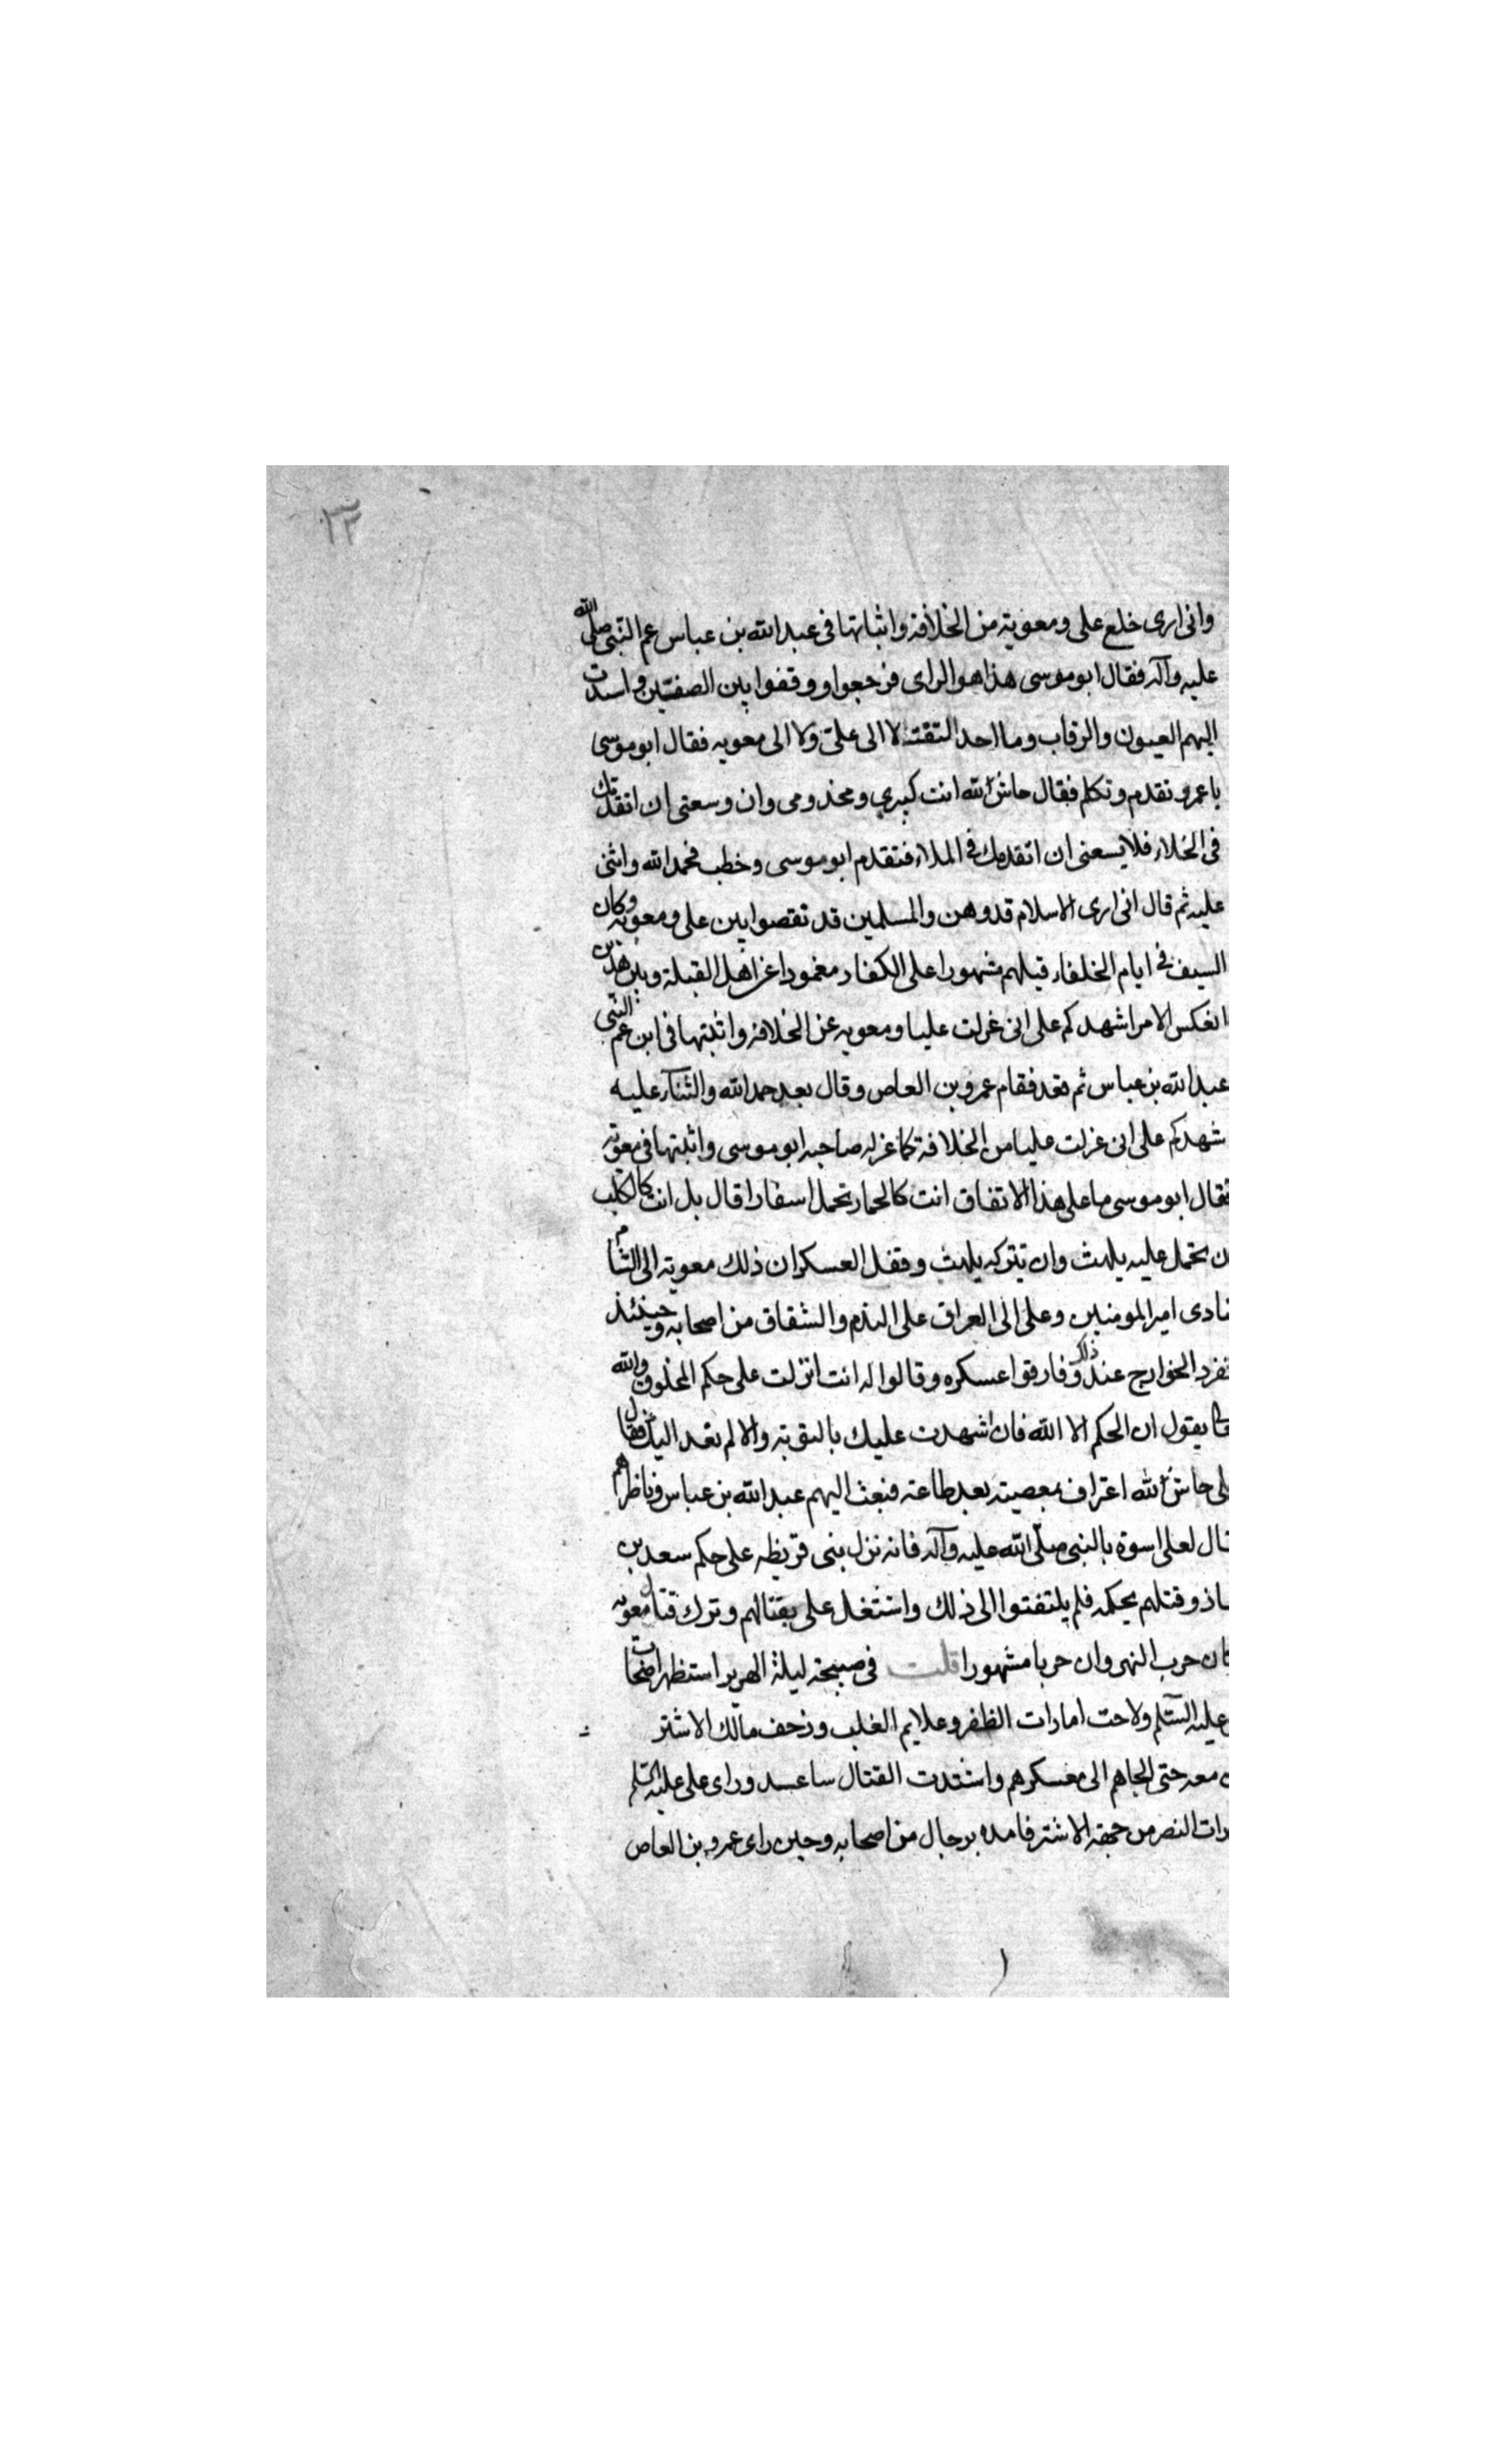 ٣٣
وانى ارى خلع على ومعوية من الخلافة واثباتها فى عبد الله بن عباس عم النبى صلى الله
عليه وآله فقال ابو موسى هذا هو الراى فرجعوا ووقفوا بين الصفين واسدت
اليهم العيون والرقاب وما احد التفت لا الى على ولا الى معويه فقال ابو موسى
يا عمرو تقدم وتكلم فقال حاش لله انت كبيرى ومخدومى وان وسعنى ان اتقدمك
فى الخلاء فلا يسعنى ان اتقدمك فى الملاء فتقدم ابو موسى وخطب فحمد الله واثنى
عليه ثم قال انى ارى الاسلام قد وهن والمسلمين قد تقصوا بين على ومعوية وكان
السيف فى ايام الخلفاء قبلهم مشهورا على الكفار مغمودا عن اهل القبلة وبين هذين
انعكس الامر اشهدكم على انى عزلت عليا ومعويه عن الخلافة واثبتها فى ابن عم النبى
عبد الله بن عباس ثم قعد فقام عمرو بن العاص وقال بعد حمد الله والثنآء عليه
شهدكم على انى عزلت عليا من الخلافة كما عزله صاحبه ابو موسى واثبتها فى معوية
فقال ابو موسى ما على هذا الاتفاق انت كالحمار تحمل اسفارا قال بل انت كالكلب
ن تحمل عليه يلهث وان تتركه يلهث وقفل العسكران ذلك معوية الى الشام
نادى امير المومنين وعلى الى العراق على الندم والشقاق من اصحابه وحينئذ
نفرد الخوارج عند ذلك وفارقوا عسكره وقالوا له انت انزلت على حكم المخلوق والله
يقول ان الحكم الا الله فان شهدت عليك بالتوبة والا لم نعد اليك فقال
لى حاش لله اعتراف بمعصية بعد طاعة فبعث اليهم عبد الله بن عباس وناظرهم
قال لعلى اسوة بالنبى صلى الله عليه وآله فانه نزل بنى قريظه على حكم سعد بن
ماذ وقتلهم بحكمه فلم يلتفتوا الى ذلك واشتغل على بقتالهم وترك قتال معوية
كان حرب النهروان حربا مشهورا قلت فى صبيحة ليلة الهرير استظهر اصحاب
عليه السلم ولاحت امارات الظفر وعلايم الغلب وزحف مالك الاشتر
معه حتى الجاهم الى معسكرهم واشتدت القتال ساعة وراى على عليه السلم
رات النصر من جهة الاشتر فامده برجال من اصحابه وحين راى عمرو بن العاص